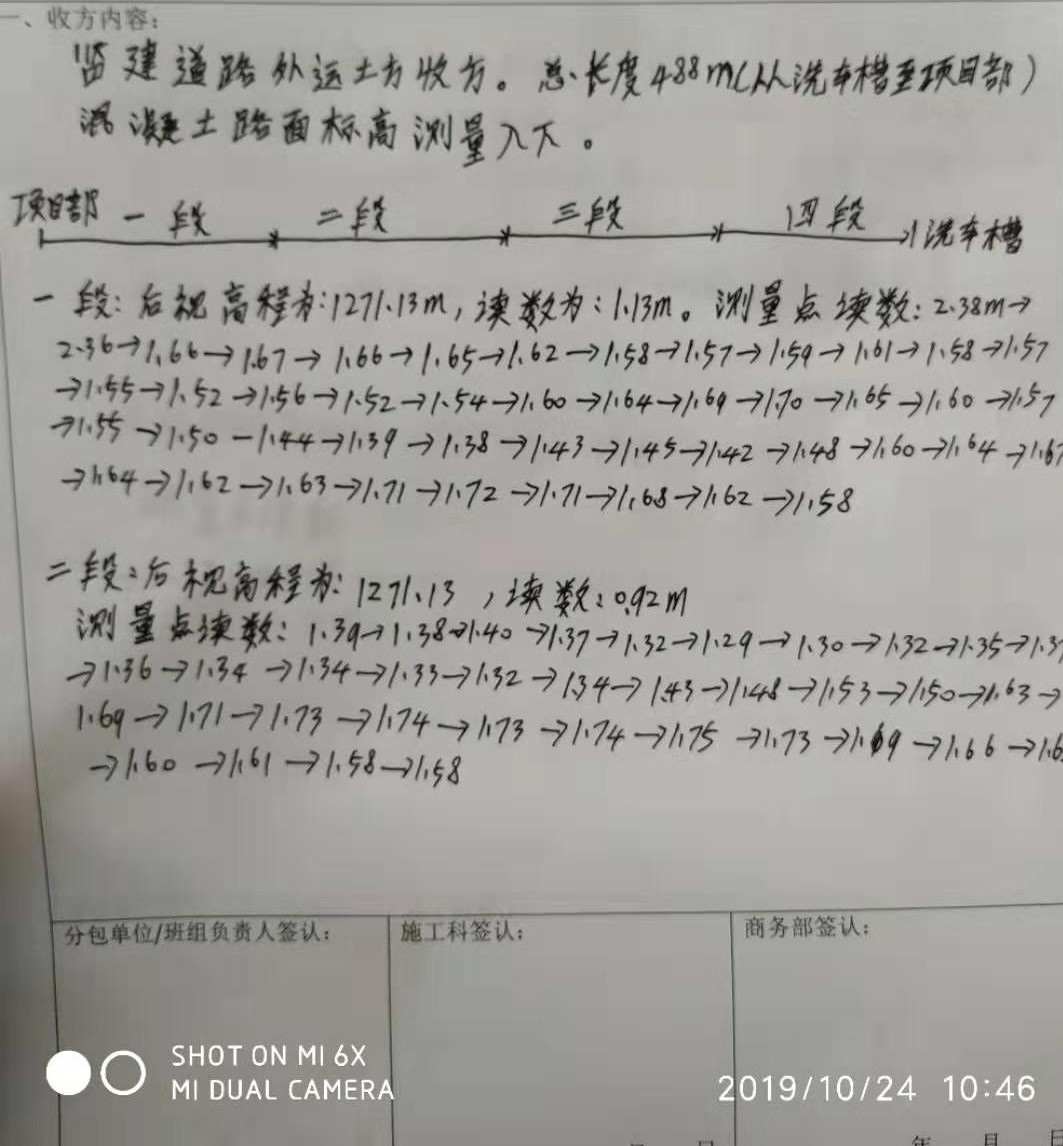 一、收方内容:
道路外运土方收方。总长度488m(从洗车槽至项目部)
混凝土路面标高测量入下。
项目部 一段 二段 三段 四段 洗车槽
一段:后视高程为:1271.13m,读数为:1.13m。测量点读数:2.38m→
2.36→1.66→1.67→1.66→1.65→1.62→1.58→1.57→1.59→1.61→1.58→1.57
→1.55→1.52→1.56→1.52→1.54→1.60→1.64→1.69→1.70→1.65→1.60→1.57
→1.55→1.50-1.44→1.39→1.38→1.43→1.45→1.42→1.48→1.60→1.64→1.67
→1.64→1.62→1.63→1.71→1.72→1.71→1.68→1.62→1.58
二段:后视高程为:1271.13,读数:0.92m
测量点读数:1.39→1.38→1.40→1.37→1.32→1.29→1.30→1.32→1.35→
→1.36→1.34→1.34→1.33→1.32→1.34→1.43→1.48→1.53→1.50→1.63→
1.69→1.71→1.73→1.74→1.73→1.74→1.75→1.73→1.69→1.66→
→1.60→1.61→1.58→1.58
分包单位/班组负责人签认: 施工科签认: 商务部签认:
SHOT ON MI 6X
MI DUAL CAMERA
2019/10/24 10:46
年 月 日